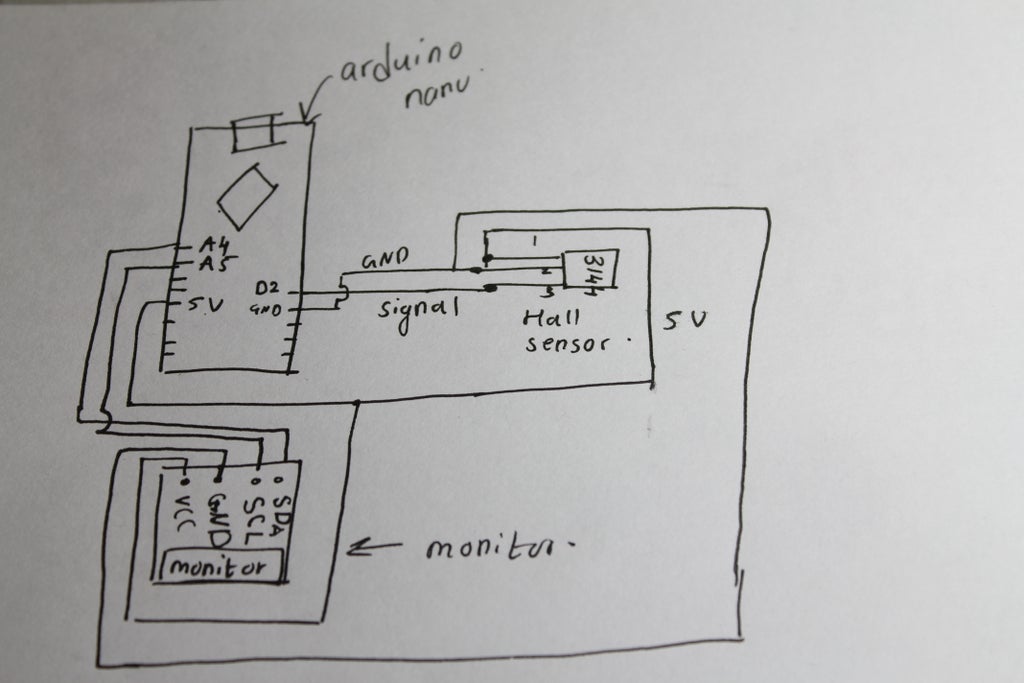 arduino
nano
A4
A5
5V
D2
GND
GND
signal
1
2
3
3144
Hall
sensor.
5V
VCC
GND
SCL
SDA
monitor
monitor.